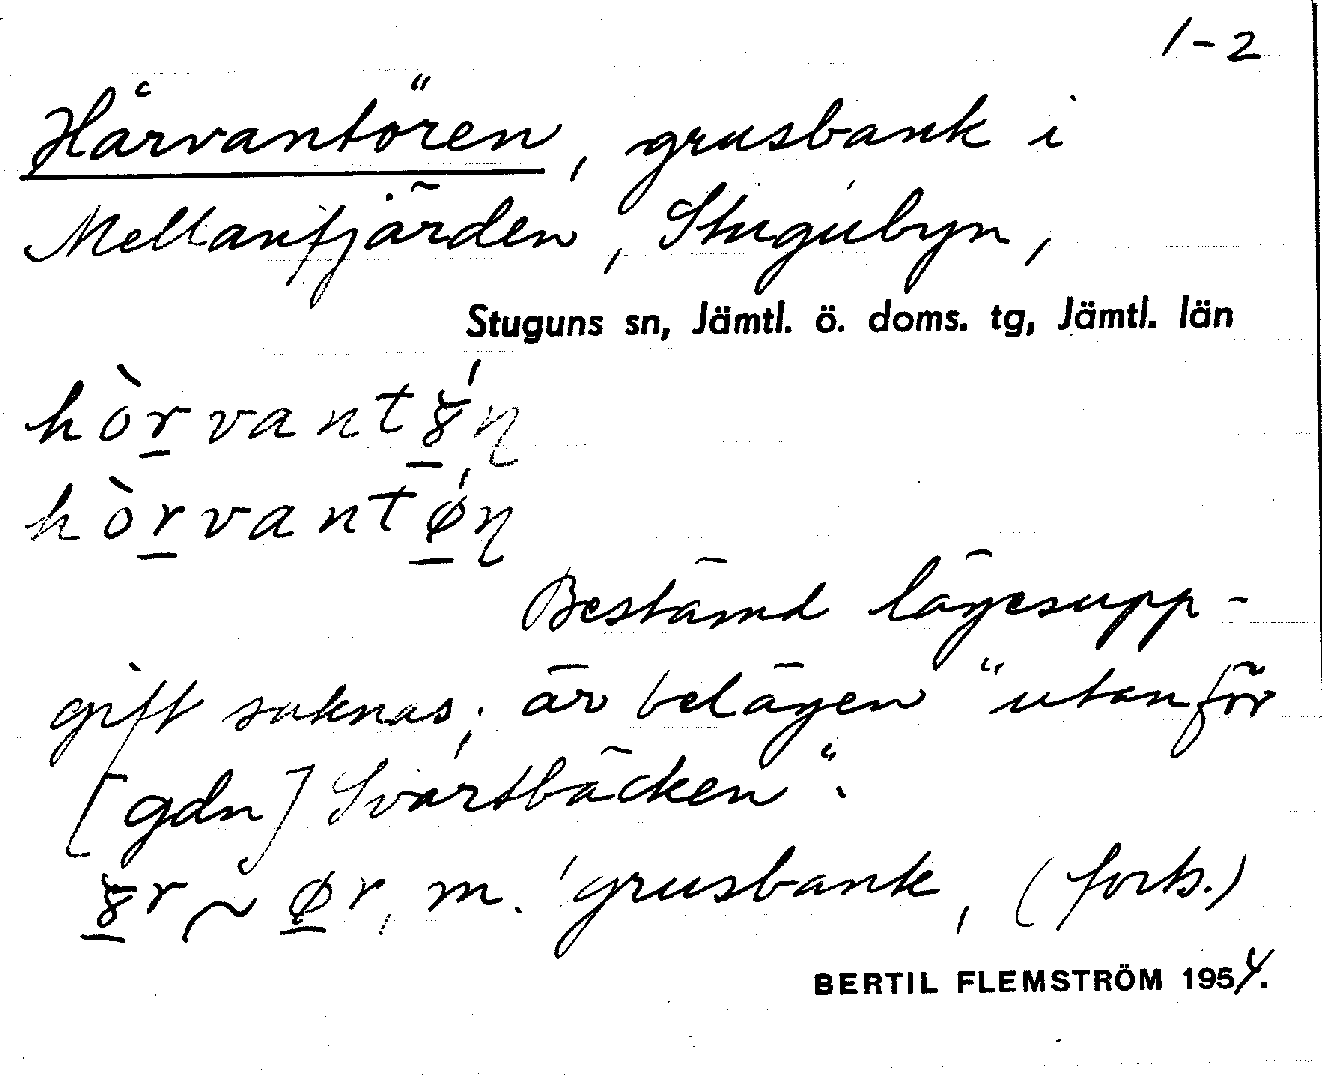 1-2
Hårvantören, grusbank i
Mellanfjärden, Stugubyn,
Stuguns sn, Jämtl. ö. doms. tg, Jämtl. län
Bestämd lägesupp-
gift saknas; är belägen "utanför
[gdn] Svartbäcken".
m. 'grusbank, (forts.)
BERTIL FLEMSTRÖM 1954.